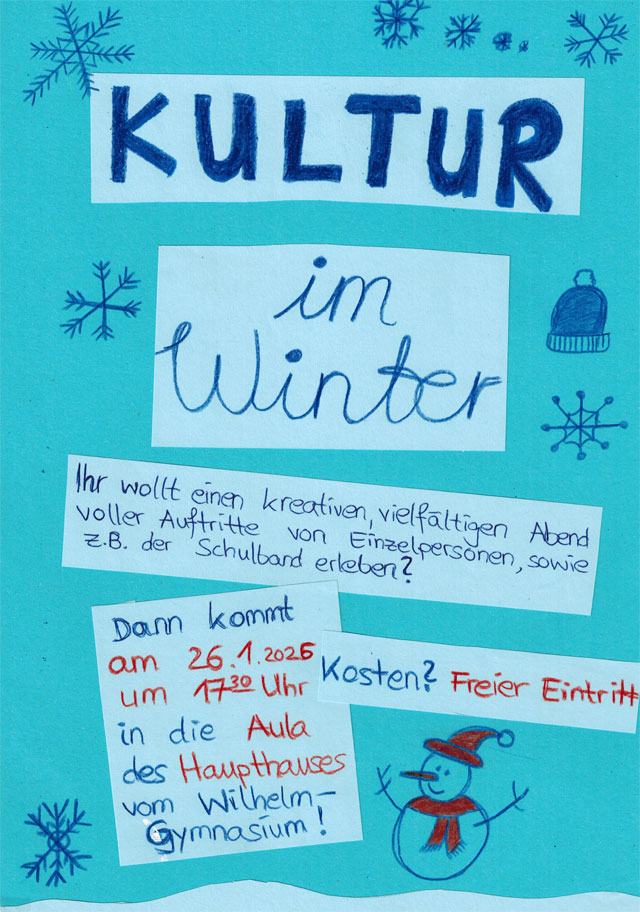 KULTUR
im
Winter
Ihr wollt einen kreativen, vielfältigen Abend
voller Auftritte von Einzelpersonen, sowie
z.B. der Schulband erleben?
Dann kommt
am 26.1.2026
um 17³⁰ Uhr
in die Aula
des Haupthauses
vom Wilhelm-
Gymnasium!
Kosten? Freier Eintritt